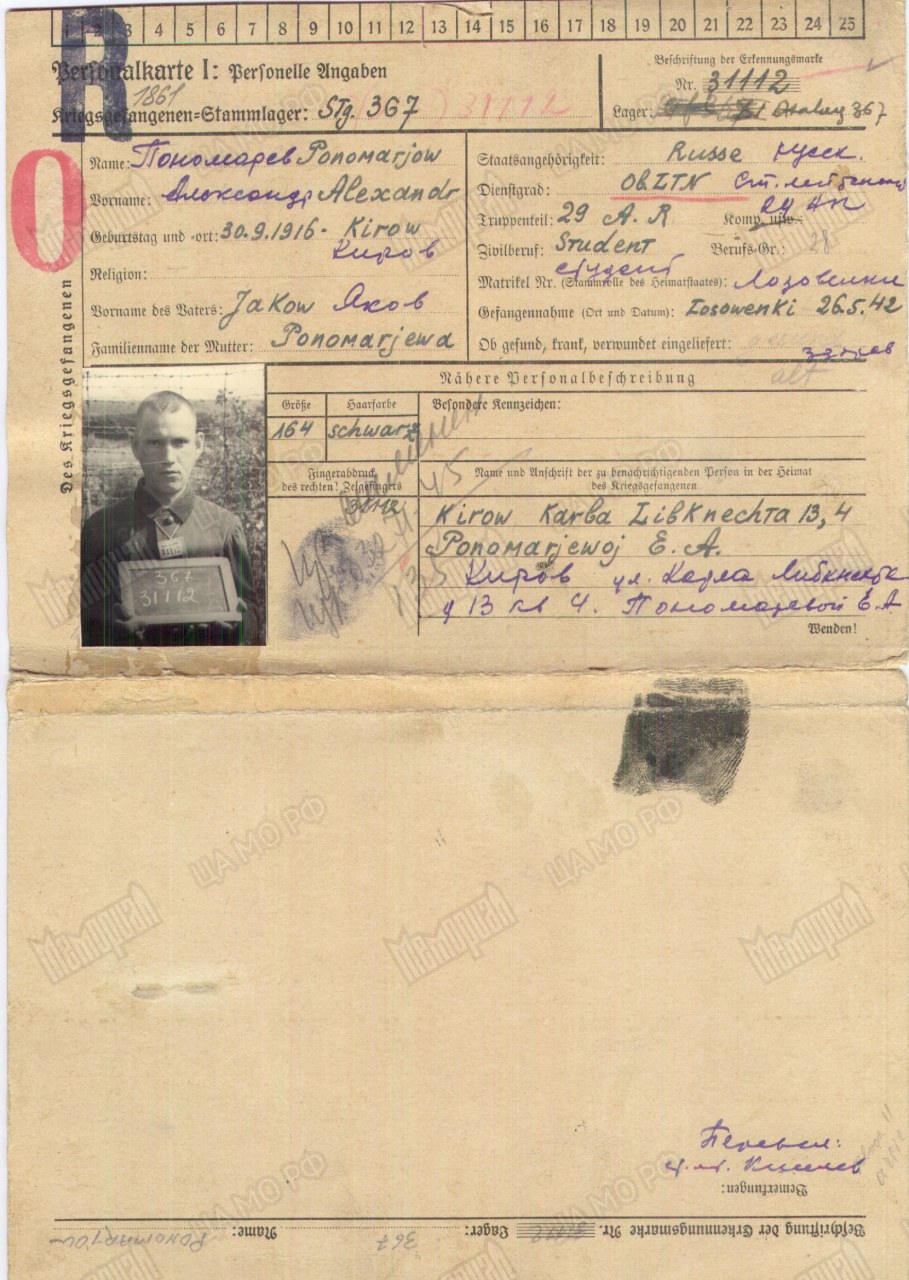 1 2 3 4 5 6 7 8 9 10 11 12 13 14 15 16 17 18 19 20 21 22 23 24 25
R
Personalkarte I: Personelle Angaben
1861
Kriegsgefangenen=Stammlager: Stg. 367 31112
Beschriftung der Erkennungsmarke
Nr. 31112
Lager: Stalag 367
O
Des Kriegsgefangenen
Name: Пономарев Ponomarjow
Vorname: Александр Alexandr
Geburtstag und =ort: 30.9.1916 - Kirow
Киров
Religion:
Vorname des Vaters: Jakow Яков
Familienname der Mutter: Ponomarjewa
Staatsangehörigkeit: Russe русск.
Dienstgrad: ObLTN Ст. лейтенант
Truppenteil: 29 A. R Komp. usw.: 29 АП
Zivilberuf: Student Berufs-Gr.: 28
студент
Matrikel Nr. (Stammrolle des Heimatstaates): Лозовеньки
Gefangennahme (Ort und Datum): Losowenki 26.5.42
Ob gesund, krank, verwundet eingeliefert:
Nähere Personalbeschreibung
Größe Haarfarbe Besondere Kennzeichen:
164 schwarz
Fingerabdruck
des rechten! Zeigefingers
31112
Name und Anschrift der zu benachrichtigenden Person in der Heimat
des Kriegsgefangenen
Kirow Karba Libknechta 13, 4
Ponomarjewoj E. A.
Киров ул. Карла Либкнехта
д 13 кв 4. Пономаревой Е. А
Wenden!
367
31112
Перевел:
Киселев
Bemerkungen:
Beschriftung der Erkennungsmarke Nr. 31112 Lager: 367 Name: Ponomarjow
Мемориал
ЦАМО РФ